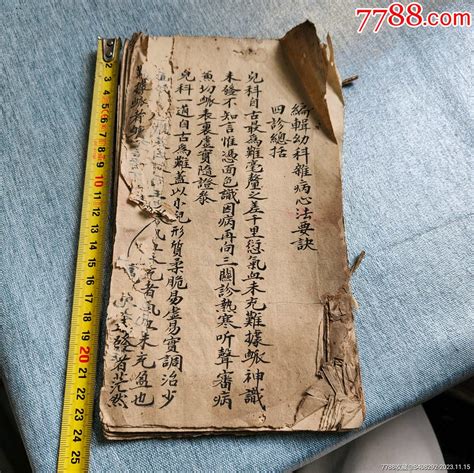 7788.com
編輯幼科雜病心法要訣
四診總括
兒科自古最為難毫釐之差千里愆氣血未充難據脈神識
未發不知言惟憑面色識因病再向三關診熱寒听聲審病
兼切脈表裏虛實隨證參
兒科一道自古為難蓋以小兒形質柔脆易虛易實調治少
者氣血未充
未發者茫然
2 3 4 5 6 7 8 9 10 11 12 13 14 15 16 17 18 19 20 21 22 23 24 25
2023.11.15